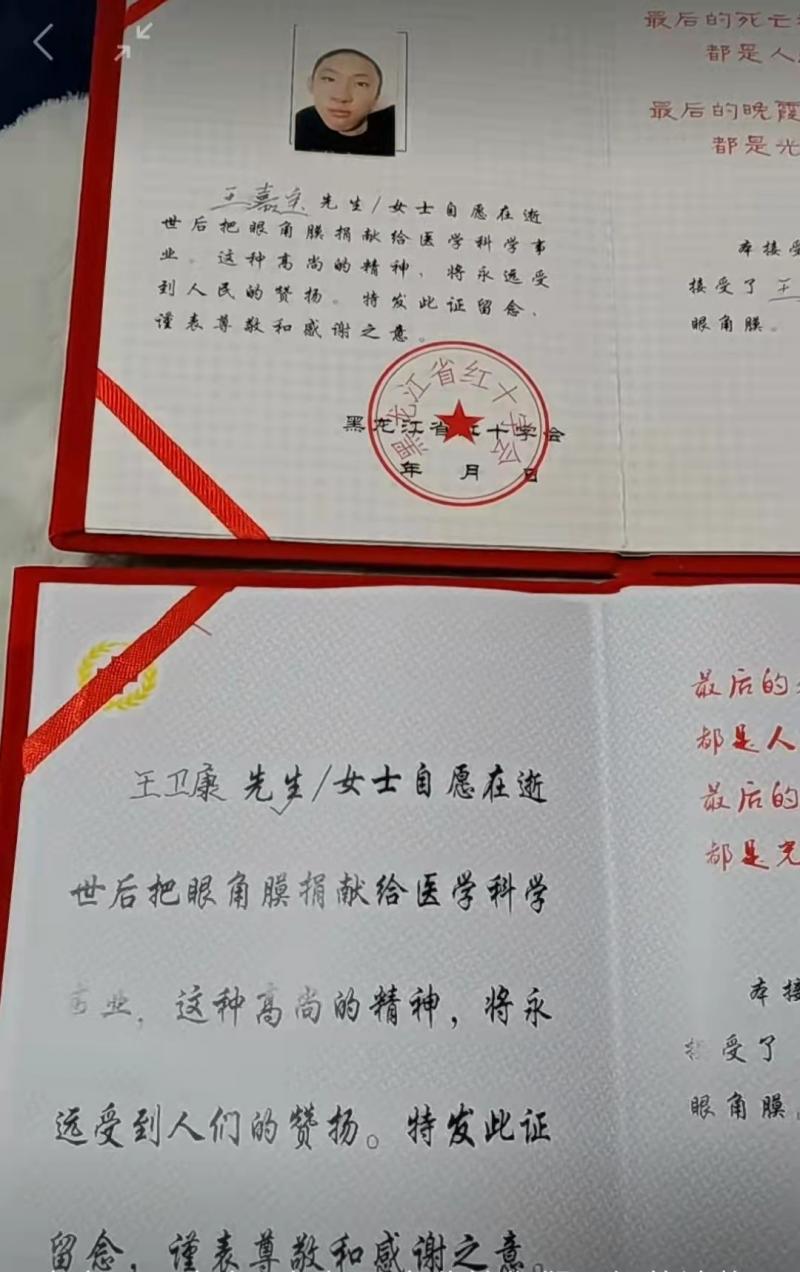 王嘉 先生/女士自愿在逝
世后把眼角膜捐献给医学科学事
业。这种高尚的精神、将永远受
到人民的赞扬。特发此证留念、
谨表尊敬和感谢之意。
黑龙江省红十字会
黑龙江省红十字会
年 月 日
最后的死亡
都是人
最后的晚霞
都是光
本接受
接受了 王
眼角膜。
王卫康 先生/女士自愿在逝
世后把眼角膜捐献给医学科学
事业,这种高尚的精神,将永
远受到人们的赞扬。特发此证
留念,谨表尊敬和感谢之意。
最后的
都是人
最后的
都是
本接
接受了
眼角膜